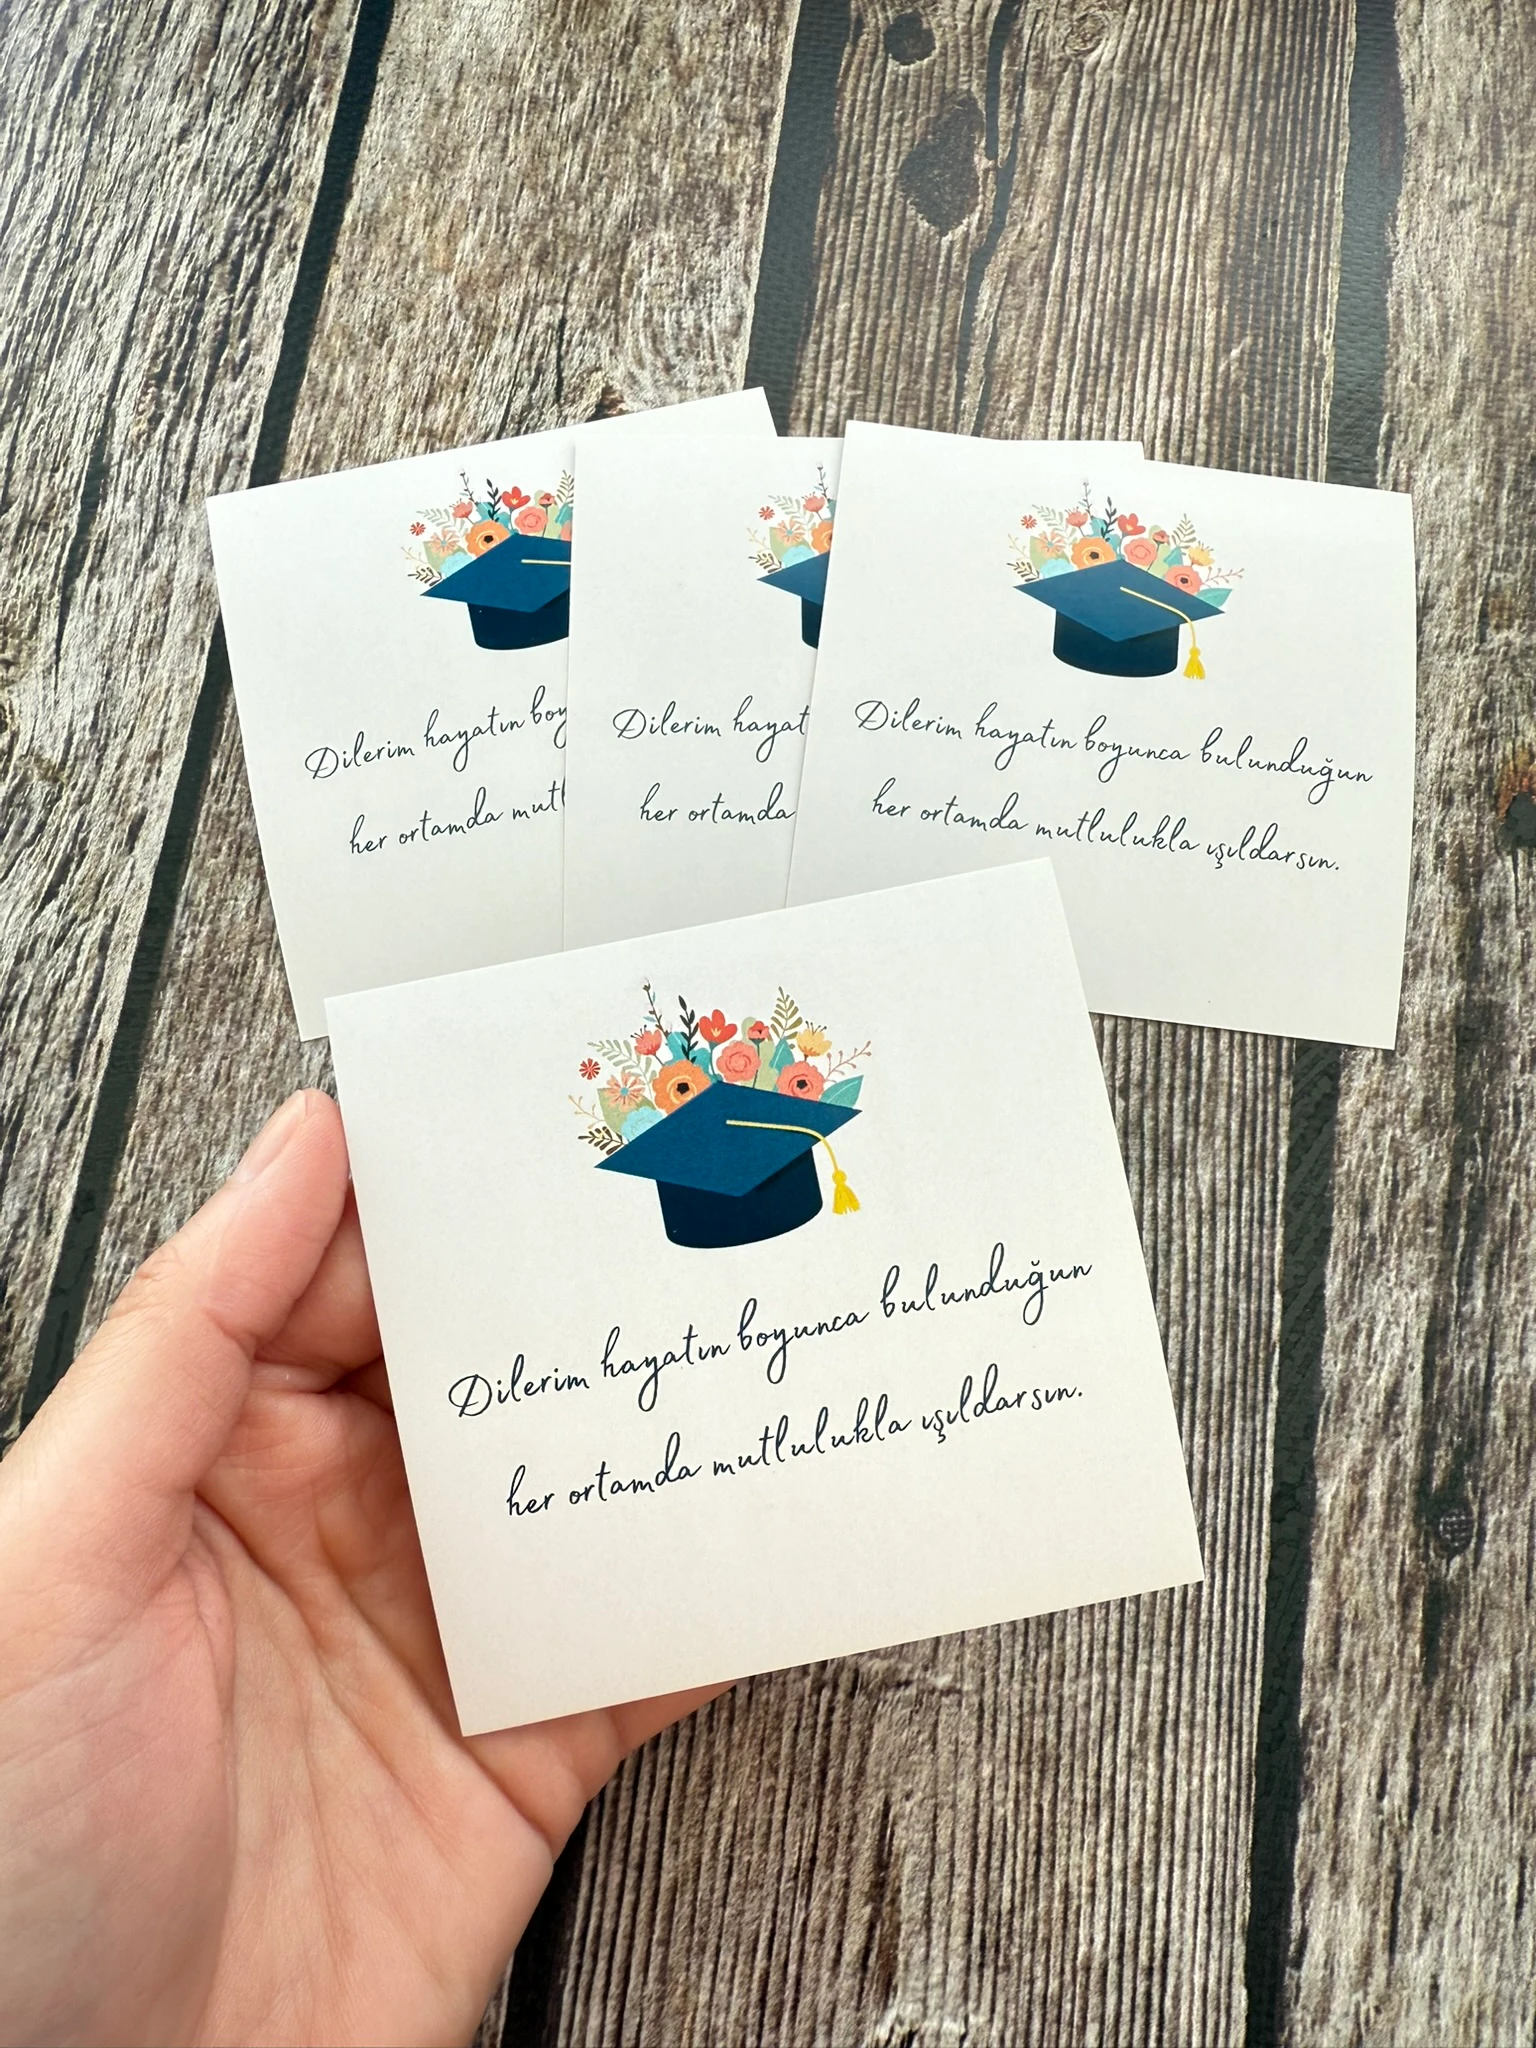 Dilerim hayatın boy
her ortamda mutl
Dilerim hayat
her ortamda
Dilerim hayatın boyunca bulunduğun
her ortamda mutlulukla ışıldarsın.
Dilerim hayatın boyunca bulunduğun
her ortamda mutlulukla ışıldarsın.